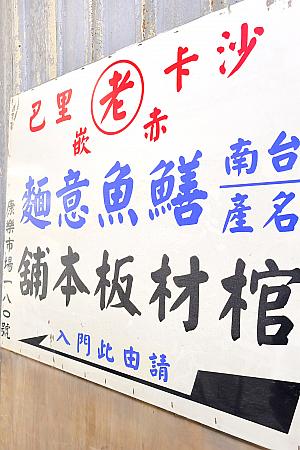 沙卡里巴
老
赤嵌
台南
名產
鱔魚意麵
棺材板本舖
請由此門入
康樂市場一八〇號